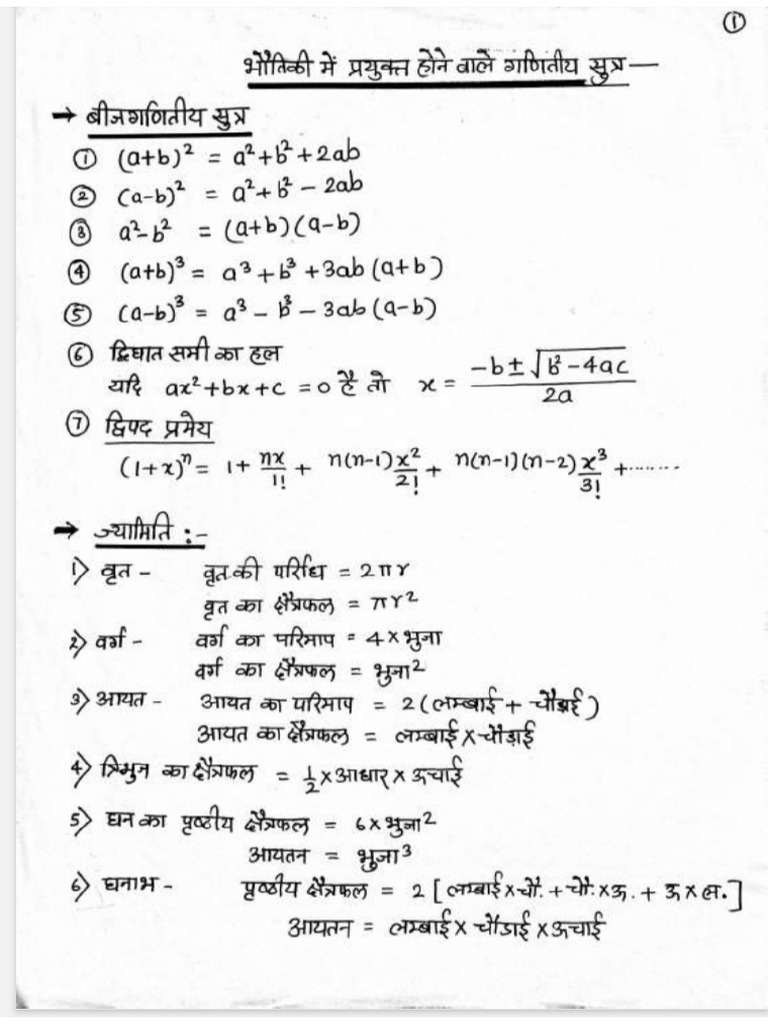 ①
भौतिकी में प्रयुक्त होने वाले गणितीय सुत्र —
→ बीजगणितीय सुत्र
① (a+b)² = a²+b²+2ab
② (a-b)² = a²+b² - 2ab
③ a²-b² = (a+b)(a-b)
④ (a+b)³ = a³+b³+3ab(a+b)
⑤ (a-b)³ = a³ - b³ - 3ab(a-b)
⑥ द्विघात समी का हल
यदि ax²+bx+c = 0 है तो x = (-b ± √(b²-4ac))/2a
⑦ द्विपद प्रमेय
(1+x)ⁿ = 1 + nx/1! + n(n-1)x²/2! + n(n-1)(n-2)x³/3! + .......
→ ज्यामिति :-
1) वृत - वृत की परिधि = 2πr
वृत का क्षैत्रफल = πr²
2) वर्ग - वर्ग का परिमाप = 4 × भुजा
वर्ग का क्षैत्रफल = भुजा²
3) आयत - आयत का परिमाप = 2(लम्बाई + चौड़ाई)
आयत का क्षैत्रफल = लम्बाई × चौड़ाई
4) त्रिभुज का क्षैत्रफल = 1/2 × आधार × ऊचाई
5) घन का पृष्ठीय क्षैत्रफल = 6 × भुजा²
आयतन = भुजा³
6) घनाभ - पृष्ठीय क्षैत्रफल = 2 [लम्बाई × चौ. + चौ. × ऊ. + ऊ × ल.]
आयतन = लम्बाई × चौडाई × ऊचाई